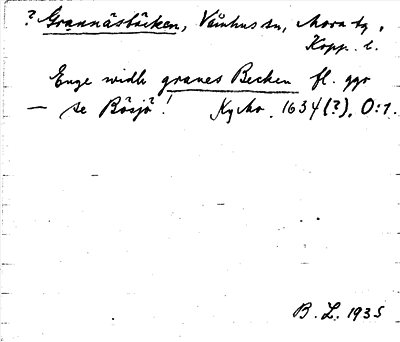 ? Grannäsbäcken, Våmhus sn, Mora tg,
Kopp. l.
Enge widh granes Becken fl. ggr
— se Bösjö! Kyrko. 1634(?). O:1.
B. L. 1935